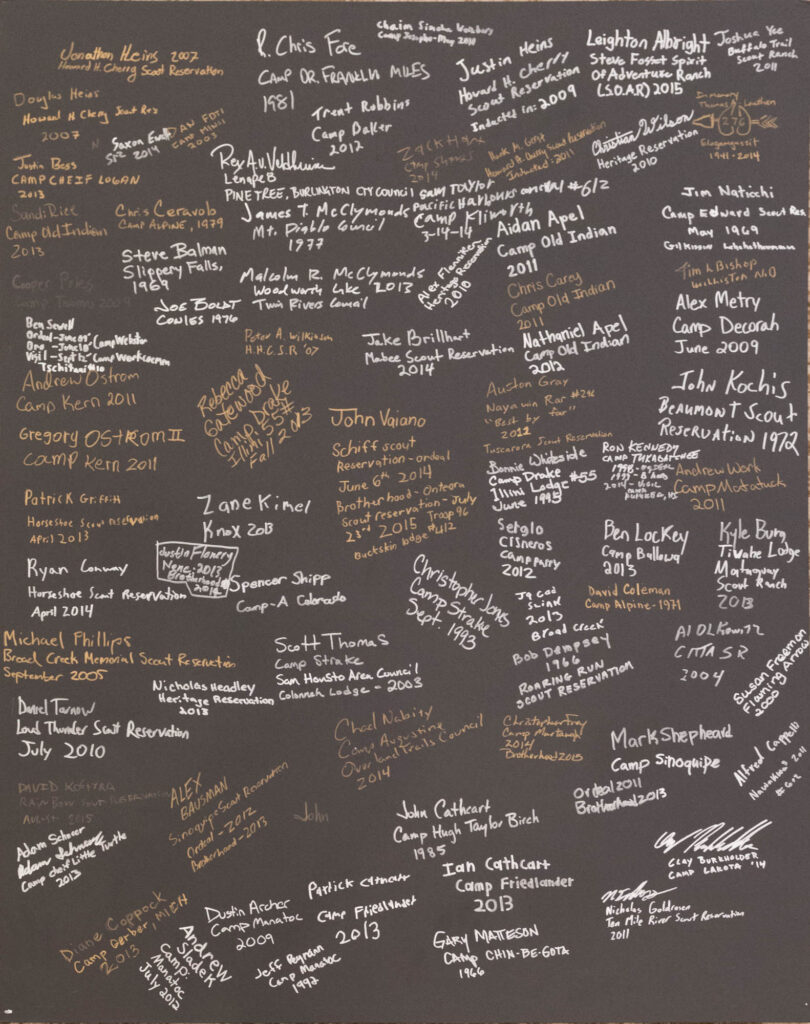 Jonathan Heins 2007
Howard H. Cherry Scout Reservation
R. Chris Fore
CAMP DR. FRANKLIN MILES
1981
Chaim Simcha
Camp Josepho - May 2011
Justin Heins
Howard H. Cherry
Scout Reservation
Inducted in: 2009
Leighton Albright
Steve Fosset Spirit
Of Adventure Ranch
(S.O.A.R) 2015
Joshua Yee
Buffalo Trail
Scout Ranch
2011
Douglas Heins
Howard H Cherry Scout Res
2007
Saxon
2014
2003
Trent Robbins
Camp Daker
2012
Zack
Camp Strake
2014
Inducted: 2011
Christian Wilson
Heritage Reservation
2010
In memory
Thomas
276
1941-2014
Justin Bess
CAMP CHEIF LOGAN
2013
Rey A.V.
Lenape B
PINE TREE, BURLINGTON CTY COUNCIL
Sam Taylor
Pacific Harbours Council #612
Camp Kilworth
3-14-14
James T. McClymonds
Mt. Diablo Council
1977
Jim Natiochi
Camp Edward Scout Res
May 1969
Sandi Rice
Camp Old Indian
2013
Chris Ceravolo
CAMP ALPINE, 1979
Aidan Apel
Camp Old Indian
2011
Steve Balman
Slippery Falls,
1969
Malcolm R. McClymonds
Woodworth Lake 2013
Twin Rivers Council
Alex
Heritage Reservation
2010
Chris Carey
Camp Old Indian
2011
Tim L Bishop
Cooper
Camp Thomas 2009
JOE BOLDT
COWLES 1976
Alex Metry
Camp Decorah
June 2009
Ben Sewell
Ordeal - June 09' Camp Webster
Bro. - June 10'
Vigil - Sept 12'
Peter A. Wilkinson
H.H.C.S.R. '07
Jake Brillhart
Mabee Scout Reservation
2014
Nathaniel Apel
Camp Old Indian
2012
Andrew Ostrom
Camp Kern 2011
Rebecca
Gatewood
Camp Drake
Illini 55#
Fall 2013
Austin Gray
"Best by far"
2012
Tuscarora Scout Reservation
John Kochis
BEAUMONT SCOUT
RESERVATION 1972
Gregory OSTROM II
Camp Kern 2011
John Vaiano
Schiff scout
Reservation - ordeal
June 6th 2014
Brotherhood - Onteora
Scout reservation - July
23rd 2015 Troop 96
Buckskin lodge #412
Bonnie Whiteside
Camp Drake
Illini Lodge #55
June 1995
RON KENNEDY
CAMP TUKABATCHEE
Andrew Work
Camp Matatuck
2011
Patrick Griffith
Horseshoe Scout Reservation
April 2013
Zane Kimel
Knox 2013
Sergio
Cisneros
Camp Parry
2012
Ben Lockey
Camp Ballowa
2013
Kyle Burg
Tiwahe Lodge
Mataguay
Scout Ranch
2013
Ryan Conway
Horseshoe Scout Reservation
April 2014
Justin Flanery
2013
Brotherhood
2014
Spencer Shipp
Camp-A Colorado
Christopher Jones
Camp Strake
Sept. 1993
2013
Broad Creek
David Coleman
Camp Alpine - 1971
Michael Phillips
Broad Creek Memorial Scout Reservation
September 2005
Scott Thomas
Camp Strake
Sam Housto Area Council
Colonneh Lodge - 2003
Bob Dempsey
1966
ROARING RUN
SCOUT RESERVATION
Al OLKowitz
2004
Susan Freeman
Flaming Arrow
2000
Nicholas Headley
Heritage Reservation
2013
Daniel Tarnow
Loud Thunder Scout Reservation
July 2010
Chad Nabity
Camp Augustine
Overland Trails Council
2014
2014
Brotherhood 2015
Mark Shepheard
Camp Sinoquipe
Ordeal 2011
Brotherhood 2013
Alfred Cappelli
2011
DAVID
RAINBOW SCOUT RESERVATION
AUGUST 2015
ALEX
BAUSMAN
Sinoquipe Scout Reservation
Ordeal - 2012
Brotherhood - 2013
John
John Cathcart
Camp Hugh Taylor Birch
1985
Adam Schnoor
Camp cheif Little Turtle
2013
Ian Cathcart
Camp Friedlander
2013
CLAY BURKHOLDER
CAMP LAKOTA '14
Diane Coppock
Camp Gerber, MICH
2013
Andrew
Sladek
Camp:
Manatoc
July 2012
Dustin Archer
Camp Manatoc
2009
Patrick Cathcart
Camp Friedlander
2013
Jeff
Camp Manatoc
1992
GARY MATTESON
CAMP CHIN-BE-GOTA
1966
Nicholas Goldrosen
Ten Mile River Scout Reservation
2011